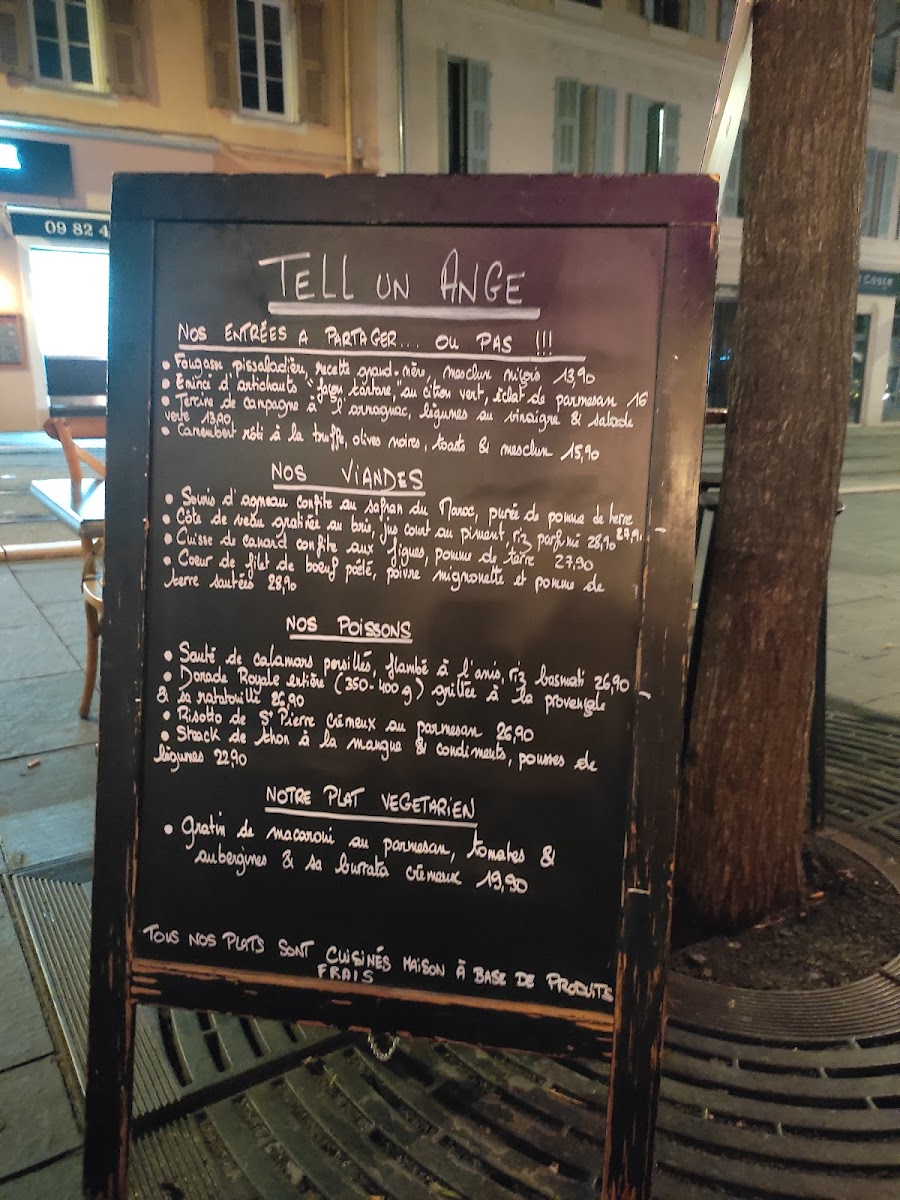 09 82 4
Coste
TELL UN ANGE
NOS ENTRÉES A PARTAGER... OU PAS !!!
• Fougasse pissaladière, recette grand-mère, mesclun niçois 13,90
• Eminci d'artichauts "façon tartare" au citron vert, éclat de parmesan 16
• Terrine de campagne à l'arragnac, légumes au vinaigre & salade
verte 13,90
• Camembert rôti à la truffe, olives noires, toasts & mesclun 15,90
NOS VIANDES
• Souris d'agneau confite au safran du Maroc, purée de pomme de terre
27,90
• Côte de veau gratinée au brie, jus court au piment, riz parfumé 28,90
• Cuisse de canard confite aux figues, pomme de terre 27,90
• Coeur de filet de boeuf poêlé, poivre mignonette et pomme de
terre sautées 28,90
NOS POISSONS
• Sauté de calamars persillés, flambé à l'anis, riz basmati 26,90
• Dorade Royale entière (350-400g) grillée à la provençale
& sa ratatouille 26,90
• Risotto de St Pierre crémeux au parmesan 26,90
• Steack de thon à la mangue & condiments, pousses de
légumes 22,90
NOTRE PLAT VEGETARIEN
• Gratin de macaroni au parmesan, tomates &
aubergines & sa burrata crémeux 19,90
TOUS NOS PLATS SONT CUISINÉS MAISON À BASE DE PRODUITS
FRAIS